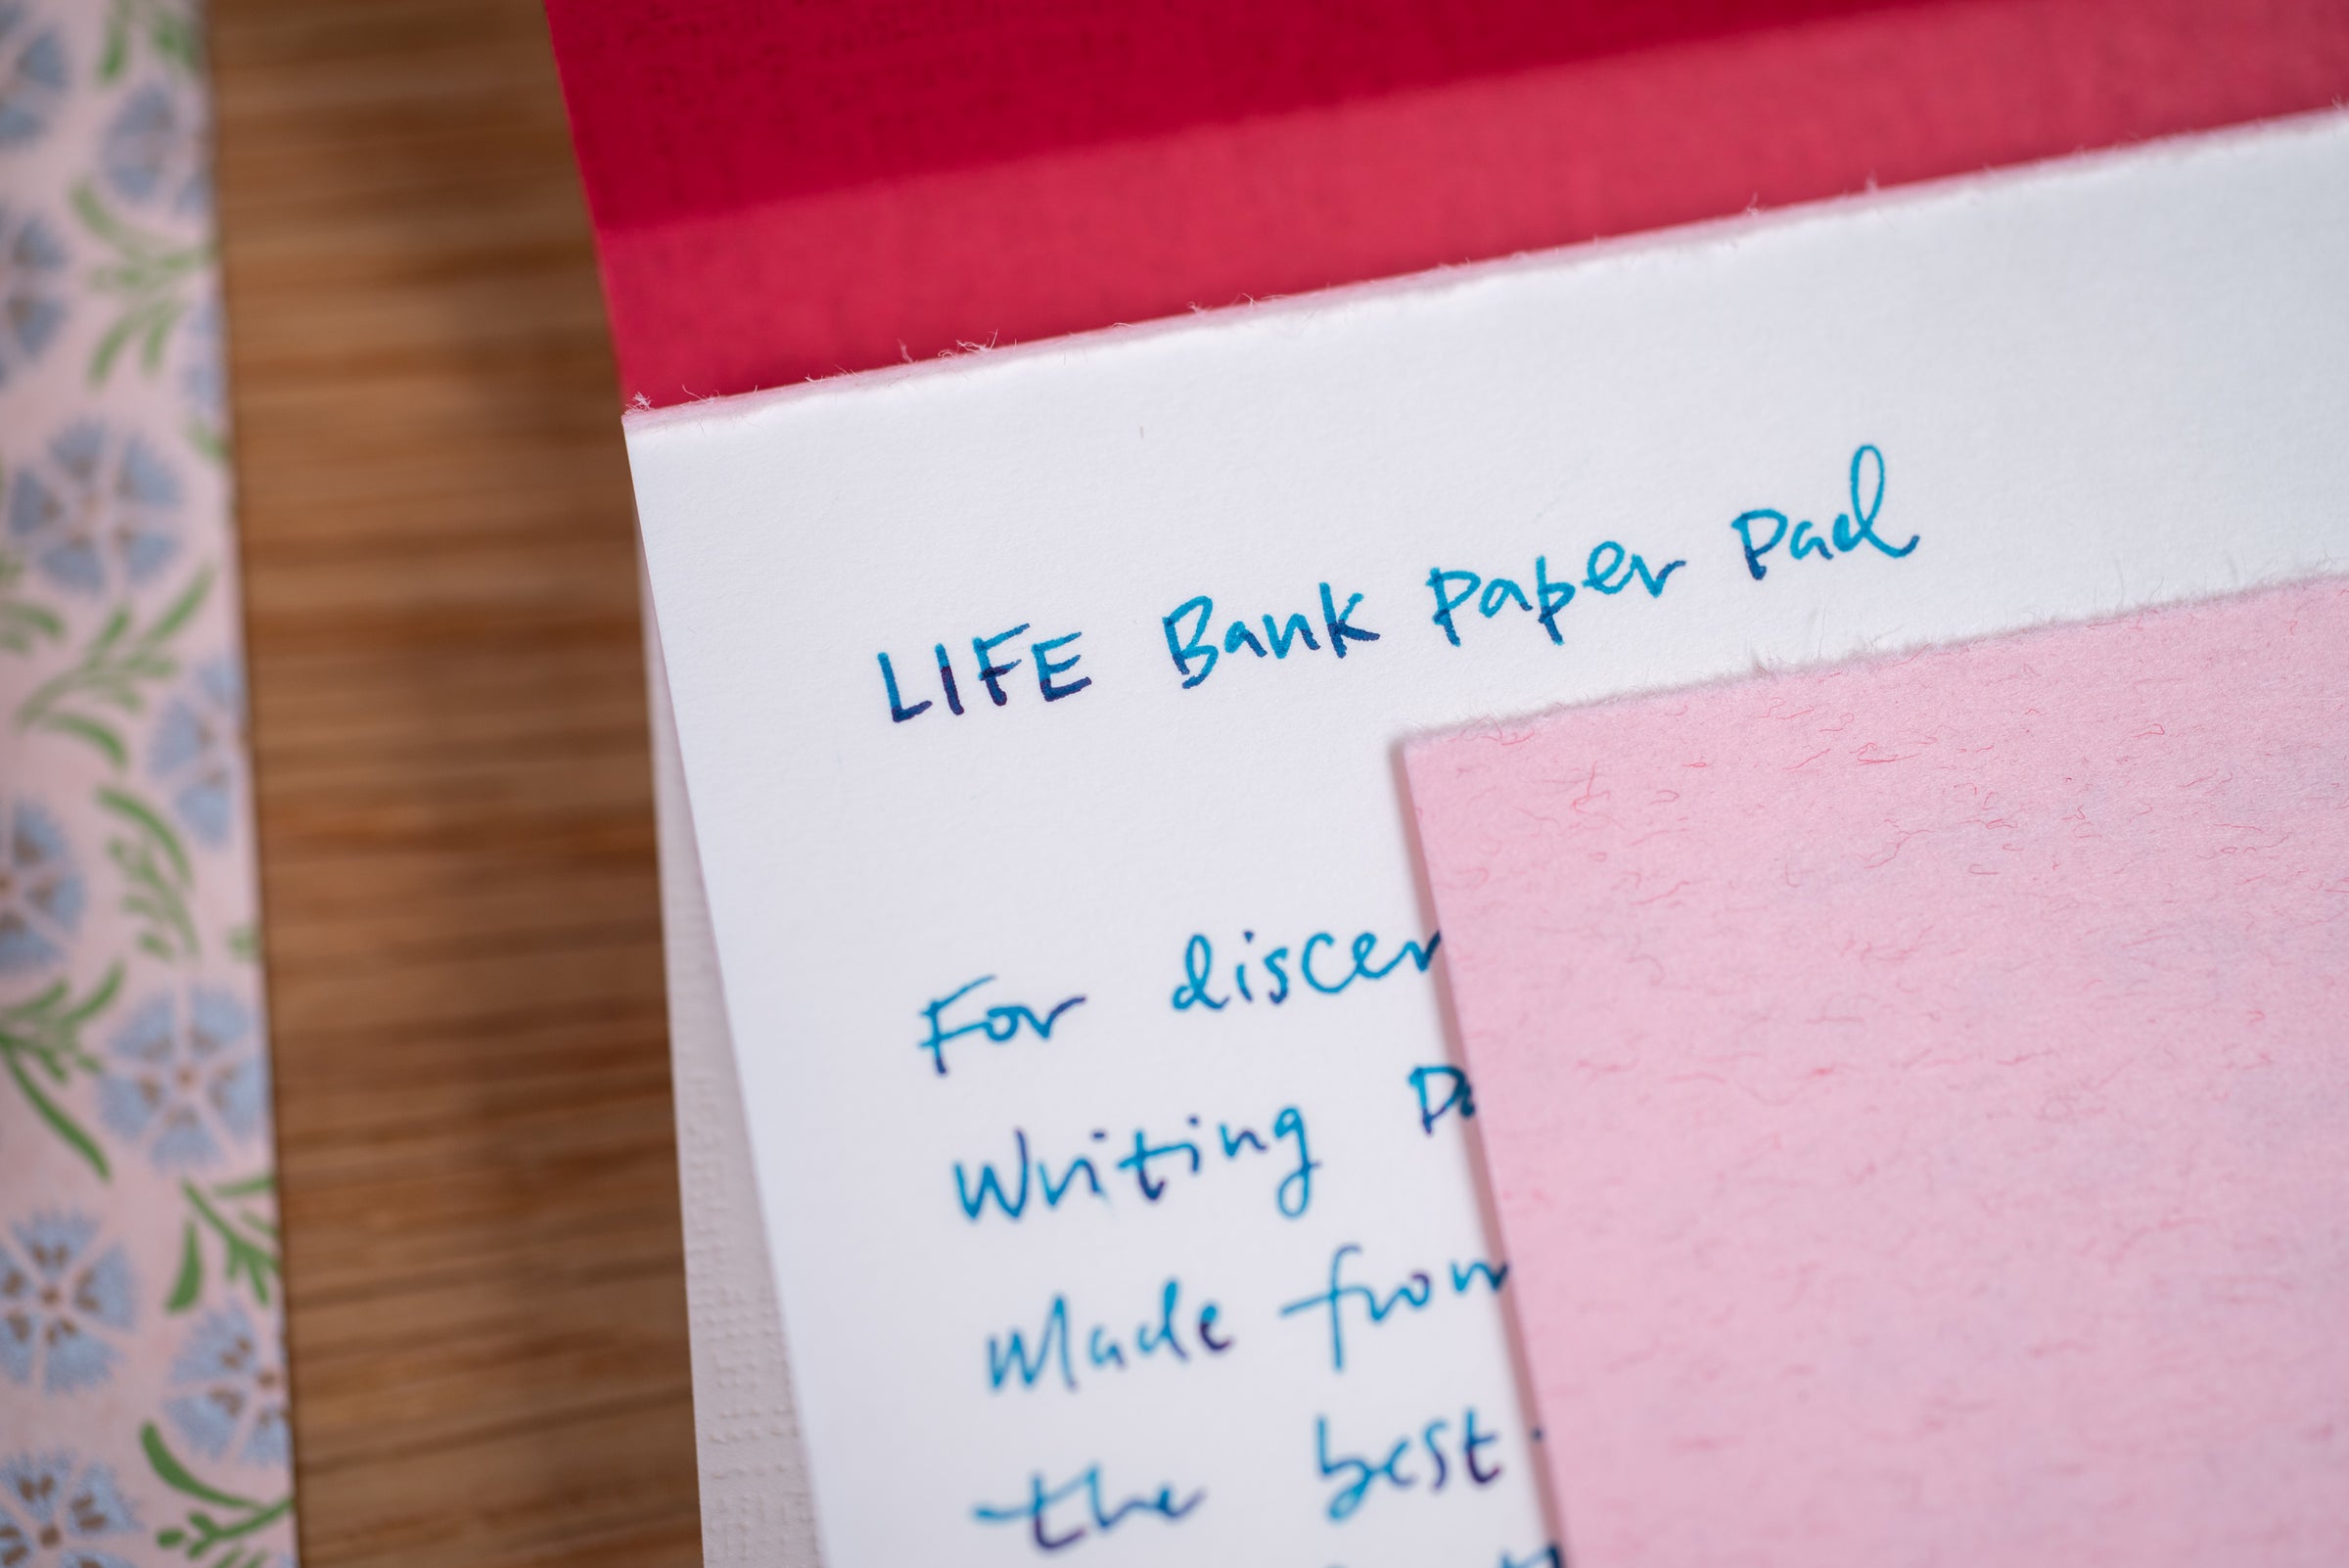 LIFE Bank Paper Pad
For discer
Writing Pa
Made from
the best